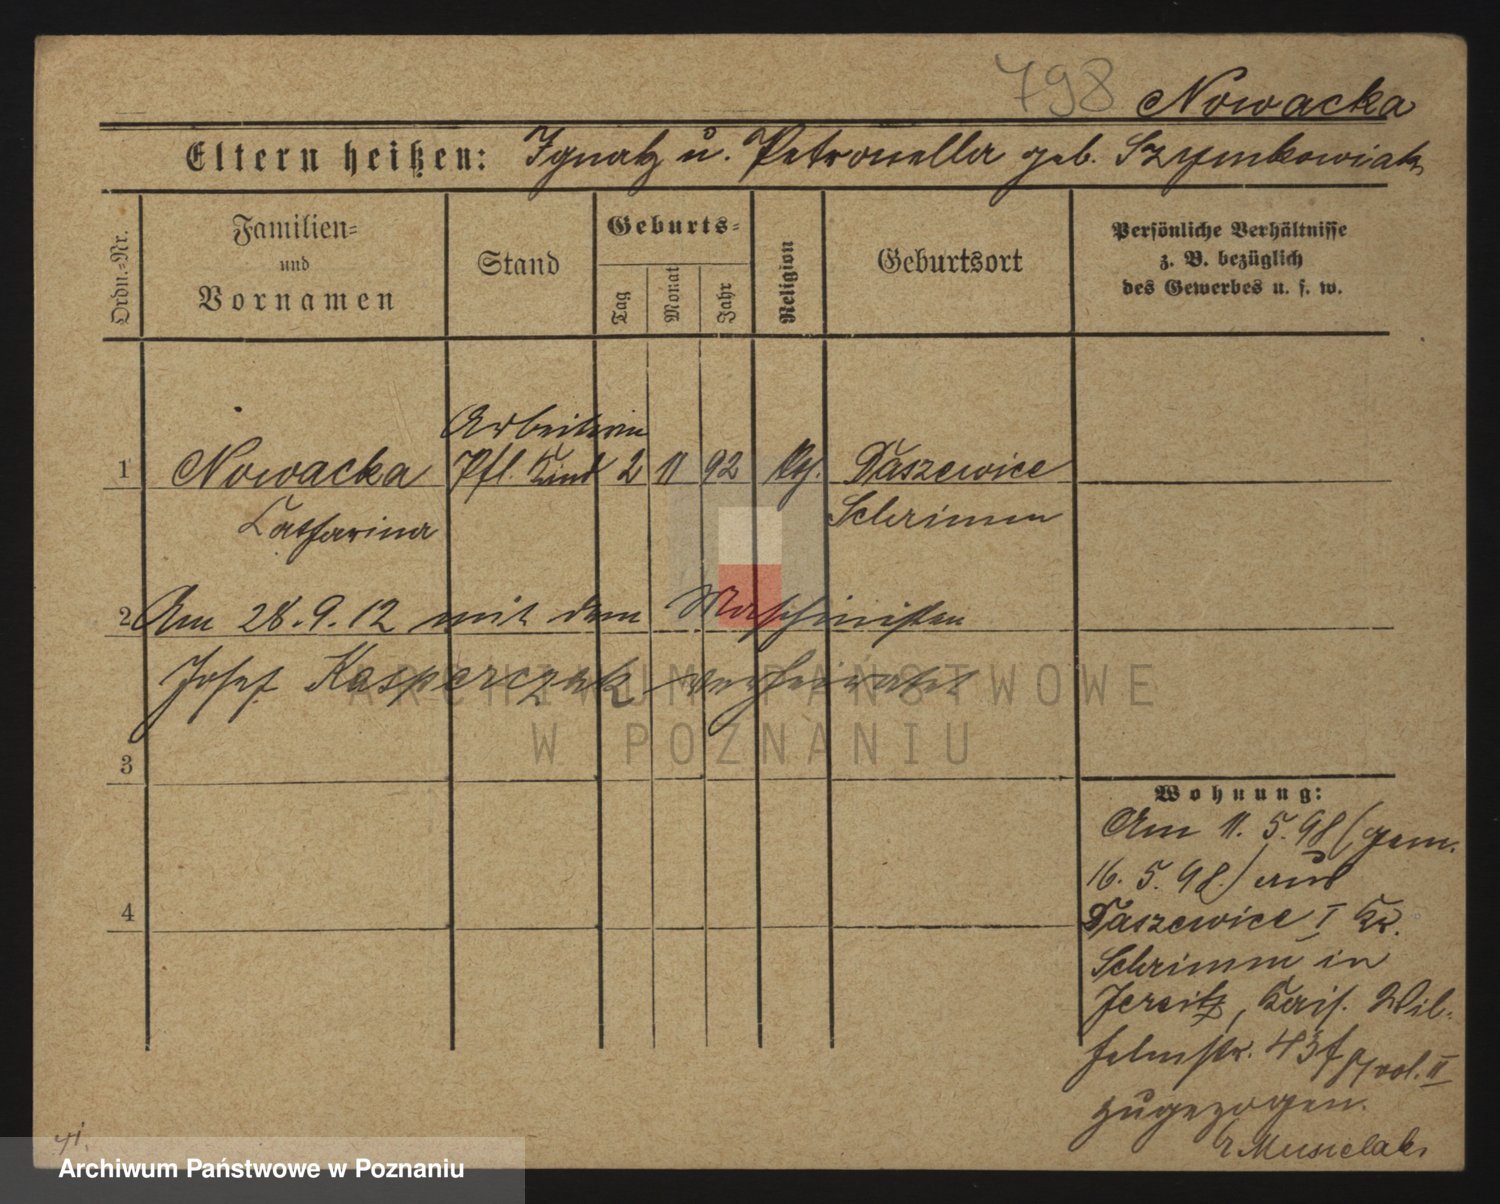 798 Nowacka
Eltern heißen: Ignatz u. Petronella geb. Szymkowiak
Ordn.-Nr.
Familien-
und
Vornamen
Stand
Geburts-
Tag
Monat
Jahr
Religion
Geburtsort
Persönliche Verhältnisse
z. B. bezüglich
des Gewerbes u. s. w.
Arbeiterin
1 Nowacka Pfl. Kind 2 11 92 Daszewice
Catharina Schrimm
2 Am 28.9.12 mit dem Maschinisten
Josef Kasperczak verheiratet
3
Wohnung:
Am 11. 5. 98 (gem.
16. 5. 98) aus
4
Daszewice I Kr.
Schrimm in
Jersitz, Kais. Wil-
helmstr. 43
zugezogen.
Musielak
ARCHIWUM PAŃSTWOWE
W POZNANIU
Archiwum Państwowe w Poznaniu